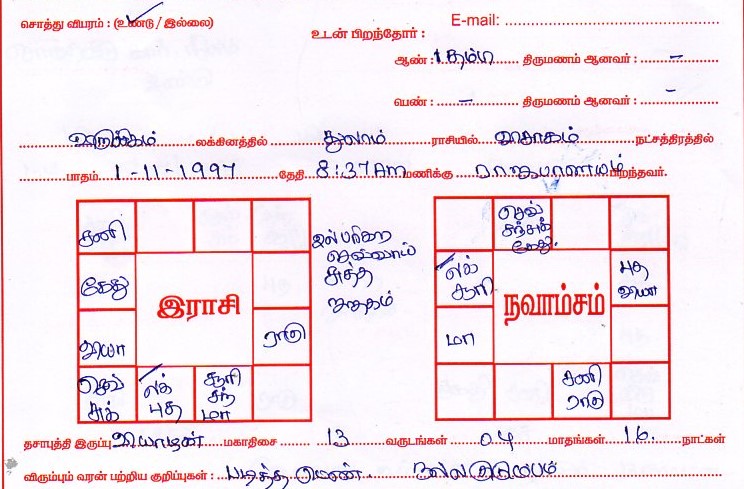 சொத்து விபரம் : (உண்டு / இல்லை)
E-mail:
உடன் பிறந்தோர் :
ஆண் : 1 தம்பி திருமணம் ஆனவர் : –
பெண் : – திருமணம் ஆனவர் : –
லக்கினத்தில் துலாம் ராசியில் விசாகம் நட்சத்திரத்தில்
பாதம் 1-11-1997 தேதி 8:37 AM மணிக்கு ராஜபாளையம் பிறந்தவர்.
சனி
கேது
வியா
செவ்
சுக்
லக்
புத
சூரி
சந்
மா
ராகு
இராசி
செவ்வாய்
சுத்த
ஜாதகம்
செவ்
சந் சுக்
கேது.
லக்
சூரி
மா
புத
வியா
சனி
ராகு
நவாம்சம்
தசாபுத்தி இருப்பு வியாழன் மகாதிசை 13 வருடங்கள் 04 மாதங்கள் 16. நாட்கள்
விரும்பும் வரன் பற்றிய குறிப்புகள் : படித்த பெண். நல்ல குடும்பம்